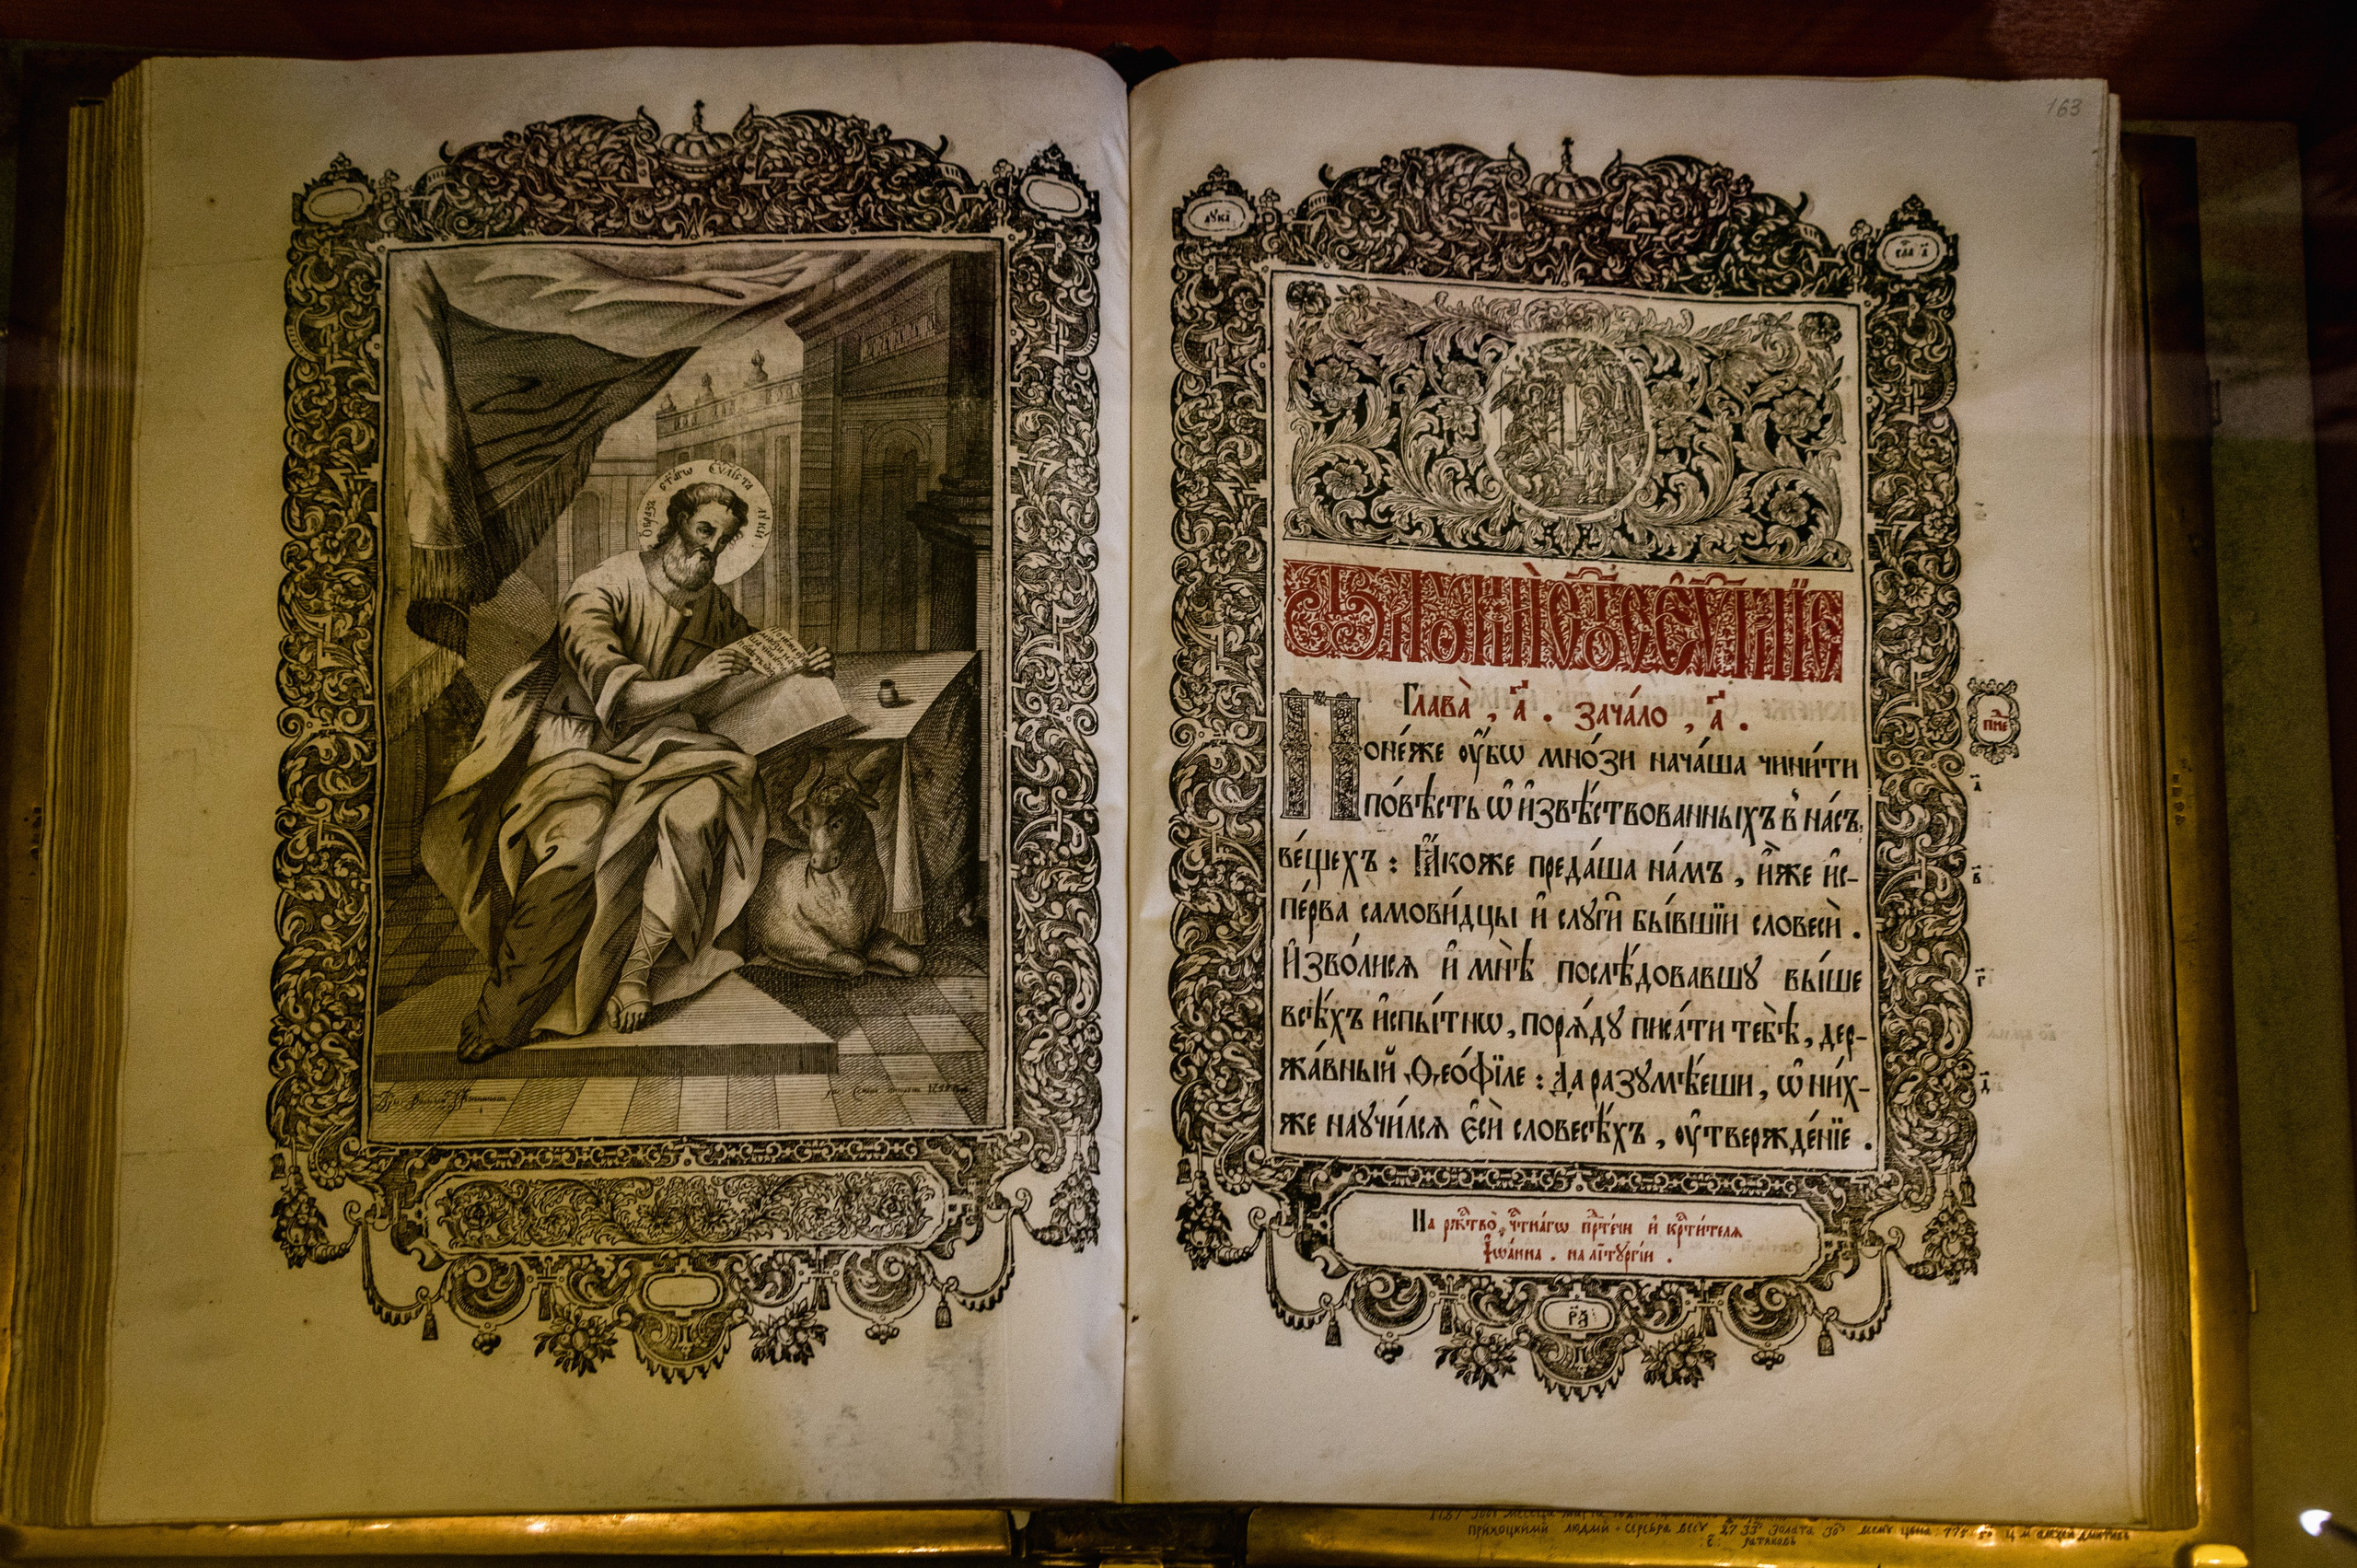 Ѻбразъ ст҃агѡ Єѵⷢ҇листа Лꙋкѝ
163
лꙋкѝ
гла҃ а҃
Ѿ лꙋкѝ ст҃ое єѵⷢ҇лїе
Глава̀, а҃. зача́ло, а҃.
Поне́же ᲂу҆́бѡ мно́зи нача́ша чини́ти
по́вѣсть ѡ҆ и҆звѣ́ствованныхъ в̾ на́съ,
ве́щехъ : Ꙗ҆́коже преда́ша на́мъ, и҆̀же и҆с-
пе́рва самови́дцы и҆ слꙋги̑ бы́вшїи словесѐ.
И҆зво́лисѧ и҆ мнѣ̀ послѣ́довавшꙋ вы́ше
всѣ̑хъ и҆спы́тнѡ, порѧ́дꙋ писа́ти тебѣ̀, дер-
жа́вный Ѳео́фїле : Да разꙋмѣ́еши, ѡ҆ ни́х-
же наꙋчи́лсѧ є҆сѝ словесѣ́хъ, ᲂу҆твержде́нїе.
На ржⷭ҇тво̀ чⷭ҇тна́гѡ прⷣте́чи и҆ крⷭ҇ти́телѧ
І҆ѡа́нна. на лїтꙋргі́и.